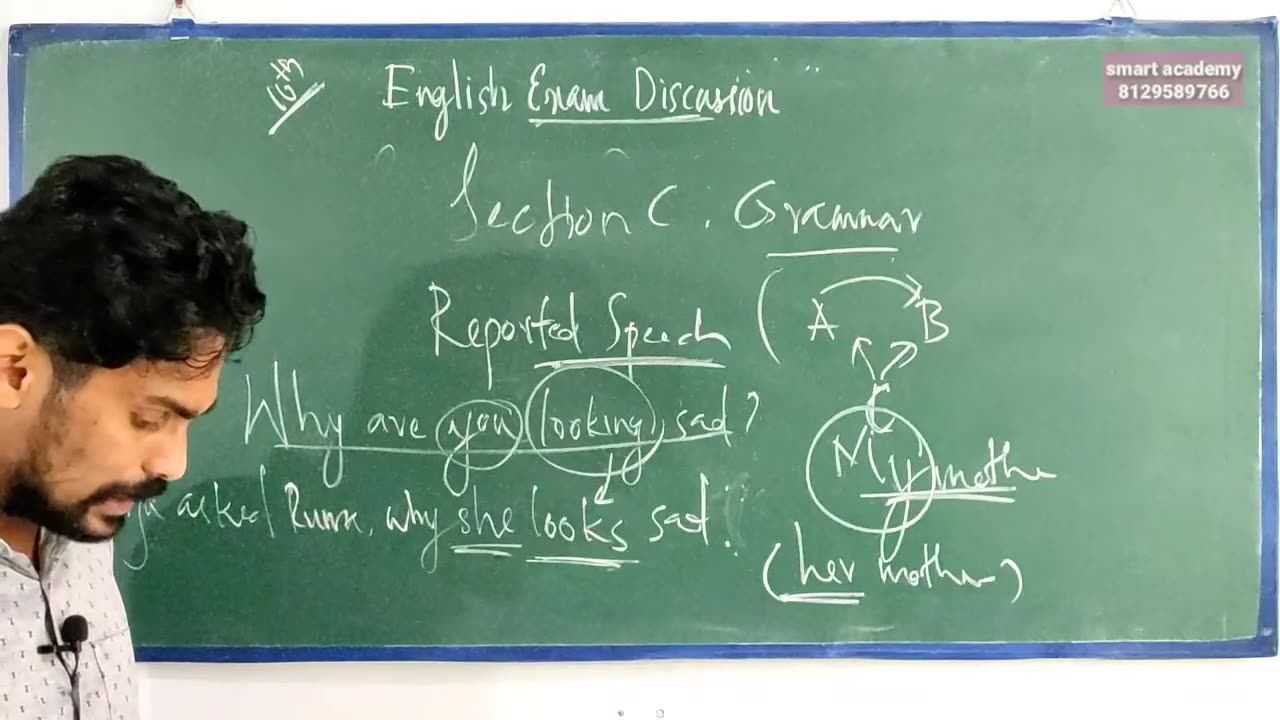 16th
English Exam Discussion
smart academy
8129589766
Section C. Grammar
Reported Speech ( A B
C
Why are you looking sad?
My mothe
asked Ruma, why she looks sad.
(her mother)